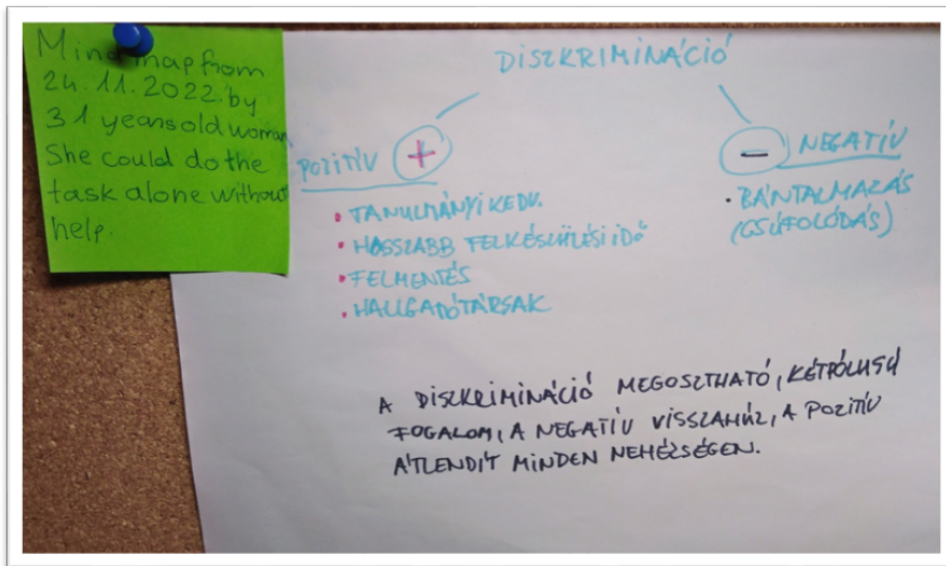 Mind map from
24.11.2022. by
31 years old woman
She could do the
task alone without
help.
DISZKRIMINÁCIÓ
POZITÍV +
• TANULMÁNYI KEDV.
• HOSSZABB FELKÉSZÜLÉSI IDŐ
• FELMENTÉS
• HALLGATÓTÁRSAK
- NEGATÍV
• BÁNTALMAZÁS
(CSÚFOLÓDÁS)
A DISZKRIMINÁCIÓ MEGOSZTHATÓ, KÉTPÓLUSÚ
FOGALOM, A NEGATÍV VISSZAHÚZ, A POZITÍV
ÁTLENDÍT MINDEN NEHÉZSÉGEN.